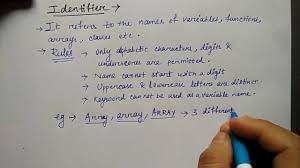 Identifier →
→ It refers to the names of variables, functions,
arrays, classes etc.
→ Rules → Only alphabetic characters, digits &
underscores are permitted.
→ Name cannot start with a digit
→ Uppercase & lowercase letters are distinct
→ Keyword cannot be used as a variable name.
eg → Array, array, ARRAY → 3 different